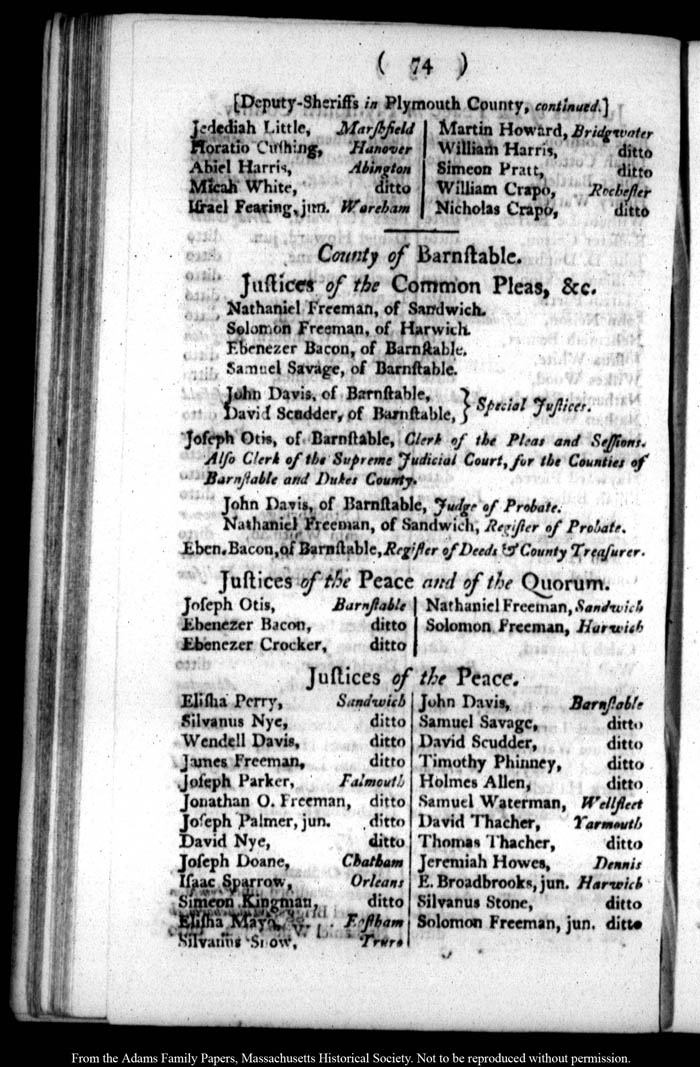 ( 74 )
[Deputy-Sheriffs in Plymouth County, continued.]
Jedediah Little, Marſhfield
Horatio Cuſhing, Hanover
Abiel Harris, Abington
Micah White, ditto
Iſrael Fearing, jun. Wareham
Martin Howard, Bridgwater
William Harris, ditto
Simeon Pratt, ditto
William Crapo, Rocheſter
Nicholas Crapo, ditto
County of Barnſtable.
Juſtices of the Common Pleas, &c.
Nathaniel Freeman, of Sandwich.
Solomon Freeman, of Harwich.
Ebenezer Bacon, of Barnſtable.
Samuel Savage, of Barnſtable.
John Davis, of Barnſtable,
David Scudder, of Barnſtable, } Special Juſtices.
Joſeph Otis, of Barnſtable, Clerk of the Pleas and Seſſions.
Alſo Clerk of the Supreme Judicial Court, for the Counties of
Barnſtable and Dukes County.
John Davis, of Barnſtable, Judge of Probate.
Nathaniel Freeman, of Sandwich, Regiſter of Probate.
Eben. Bacon, of Barnſtable, Regiſter of Deeds & County Treaſurer.
Juſtices of the Peace and of the Quorum.
Joſeph Otis, Barnſtable
Ebenezer Bacon, ditto
Ebenezer Crocker, ditto
Nathaniel Freeman, Sandwich
Solomon Freeman, Harwich
Juſtices of the Peace.
Eliſha Perry, Sandwich
Silvanus Nye, ditto
Wendell Davis, ditto
James Freeman, ditto
Joſeph Parker, Falmouth
Jonathan O. Freeman, ditto
Joſeph Palmer, jun. ditto
David Nye, ditto
Joſeph Doane, Chatham
Iſaac Sparrow, Orleans
Simeon Kingman, ditto
Eliſha Mayo, Eaſtham
Silvanus Snow, Truro
John Davis, Barnſtable
Samuel Savage, ditto
David Scudder, ditto
Timothy Phinney, ditto
Holmes Allen, ditto
Samuel Waterman, Wellfleet
David Thacher, Yarmouth
Thomas Thacher, ditto
Jeremiah Howes, Dennis
E. Broadbrooks, jun. Harwich
Silvanus Stone, ditto
Solomon Freeman, jun. ditto
From the Adams Family Papers, Massachusetts Historical Society. Not to be reproduced without permission.